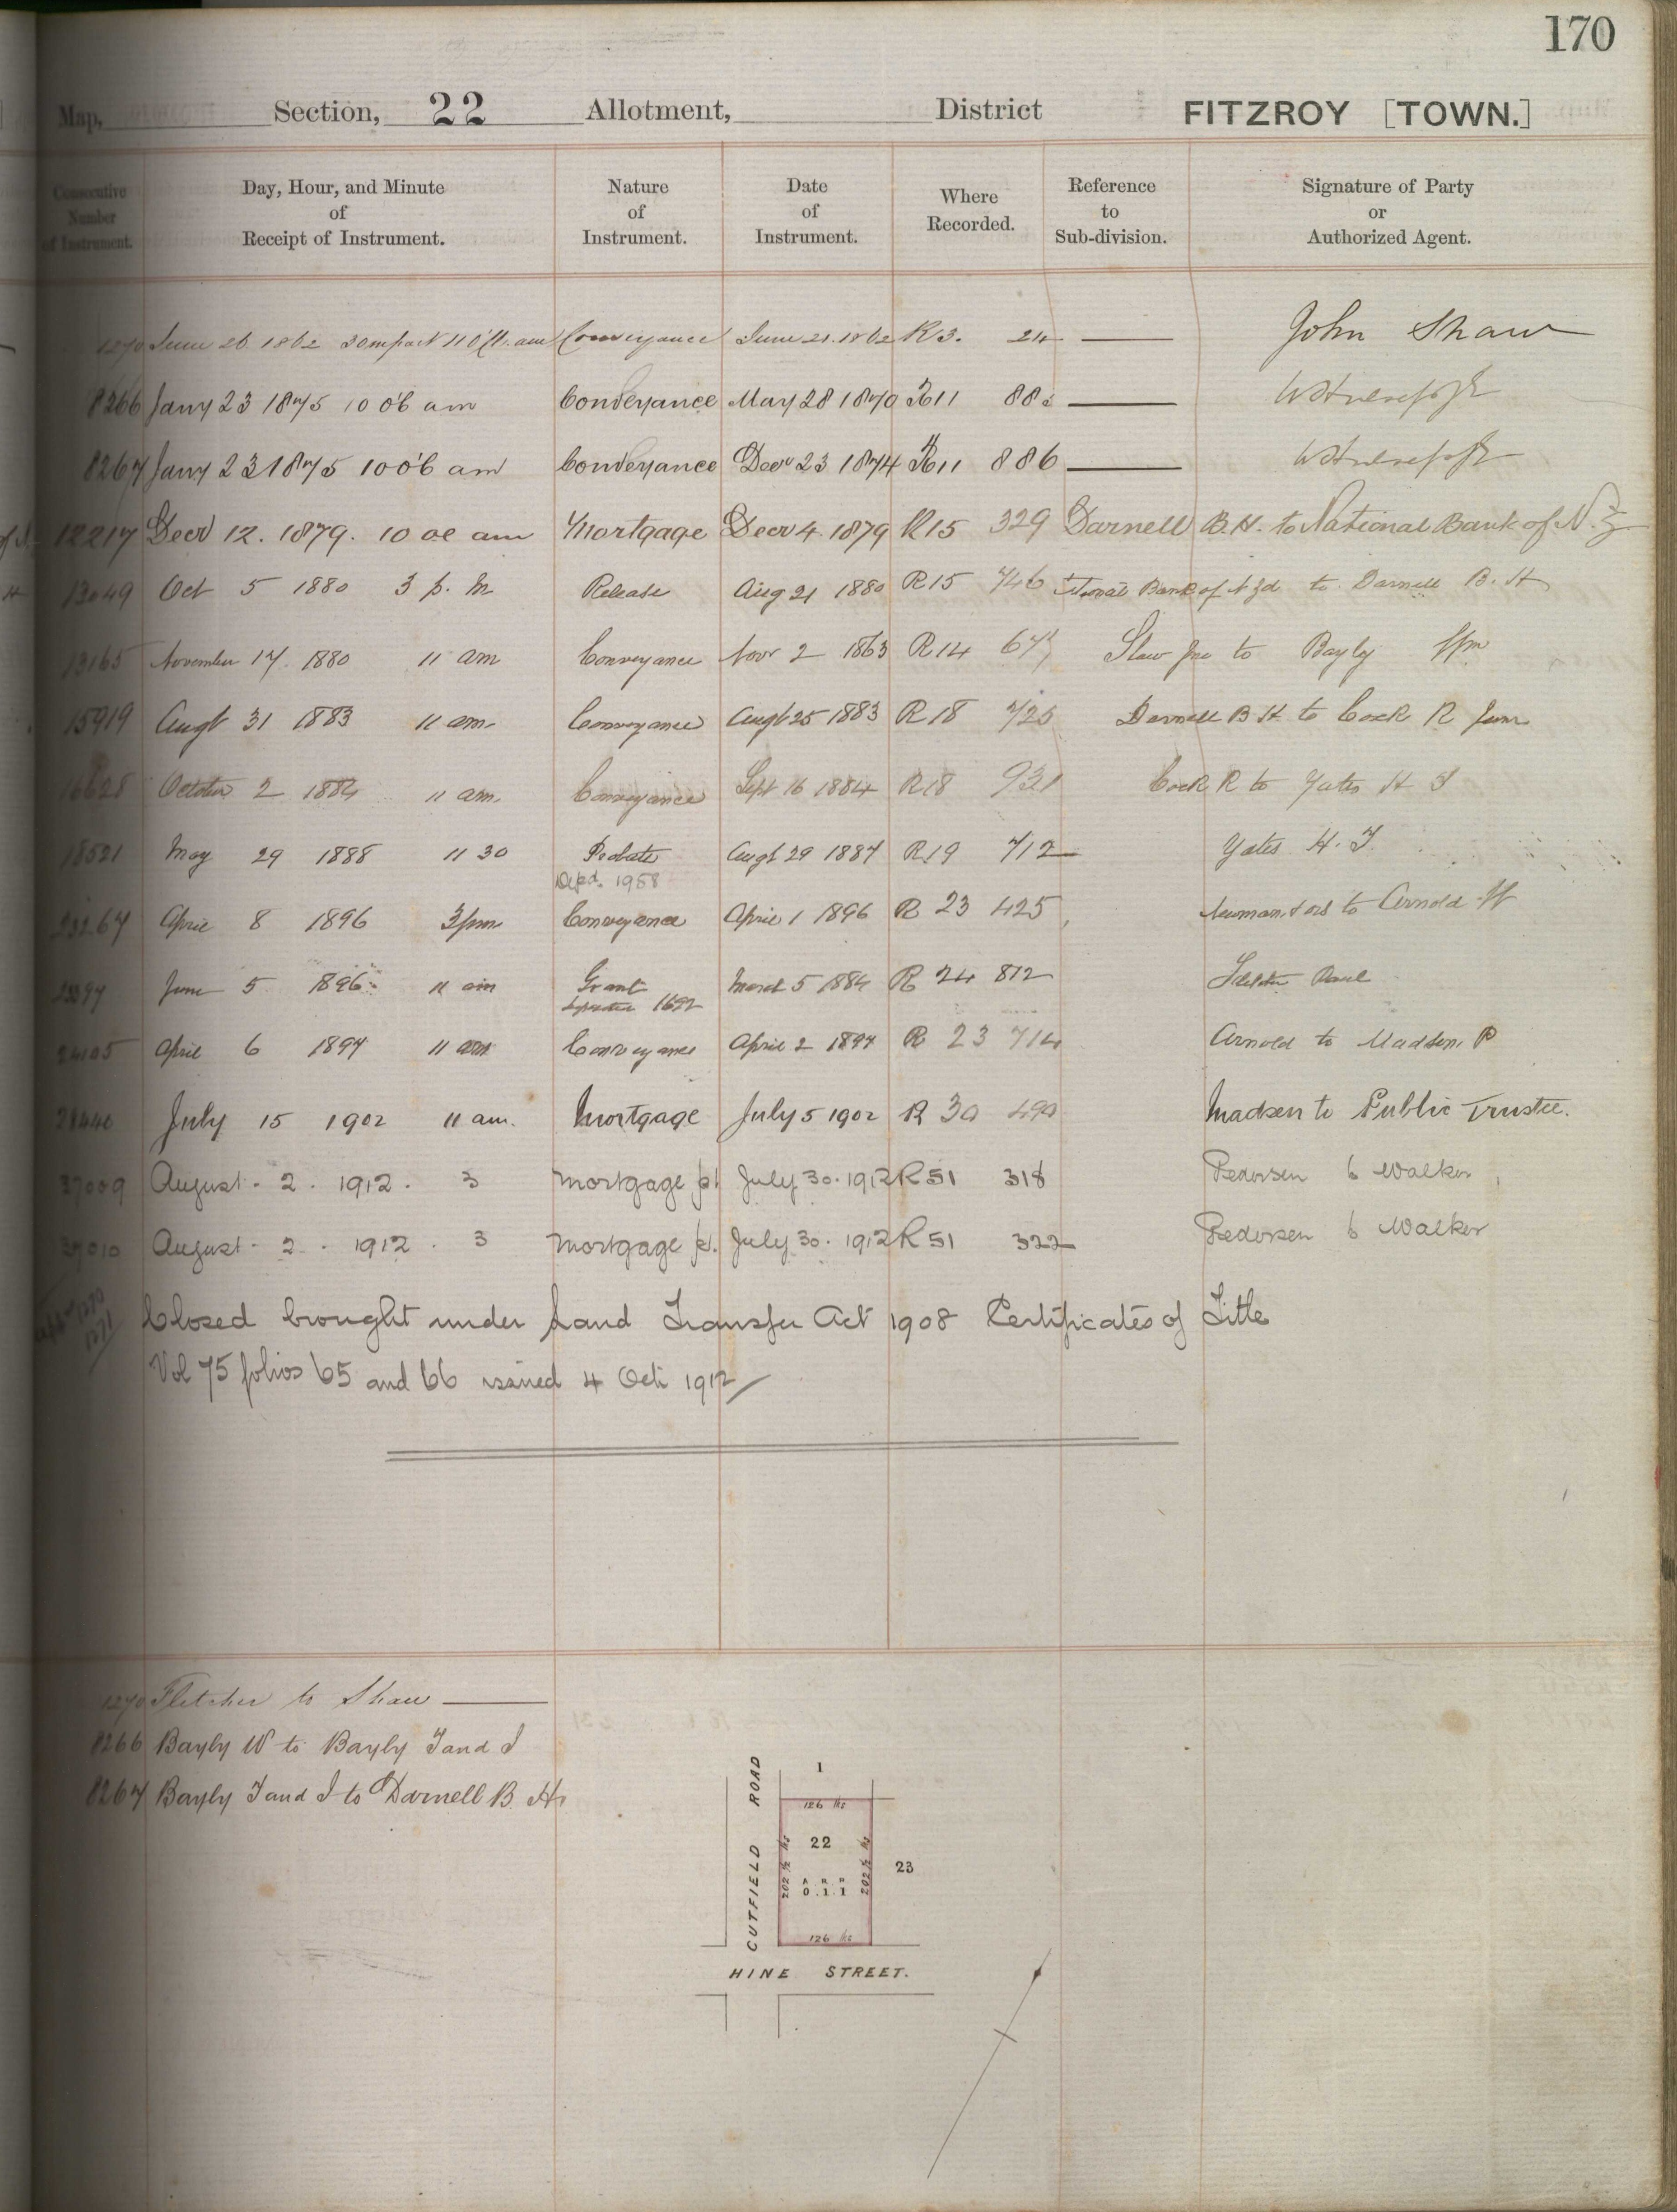 170
Map, Section, 22 Allotment, District FITZROY [TOWN.]
Consecutive Number of Instrument. Day, Hour, and Minute of Receipt of Instrument. Nature of Instrument. Date of Instrument. Where Recorded. Reference to Sub-division. Signature of Party or Authorized Agent.
1270 June 26 1862 Conveyance June 21. 1862 R3. 24 John Shaw
8266 Jany 23 1875 10 o'c am Conveyance May 28 1870 R11 885
8267 Jany 23 1875 10 o'c am Conveyance Decr 23 1874 R11 886
12217 Decr 12. 1879. 10 oc am Mortgage Decr 4 1879 R15 329 Darnell B.H. to National Bank of N.Z
13049 Oct 5 1880 3 p. m Release Aug 21 1880 R15 746 Bank of N Zd to Darnell B. H
13165 November 17. 1880 11 am Conveyance Novr 2 1863 R14 671 to Bayly
15919 Augt 31 1883 11 am Conveyance Augt 25 1883 R18 725 Darnell B H to Cock R Junr
16628 October 2 1884 11 am. Conveyance Sept 16 1884 R18 931 Cock R to Yates H T
18521 May 29 1888 11 30 Probate Augt 29 1887 R19 712 Yates H. T.
Depd. 1958
23267 April 8 1896 3 pm Conveyance April 1 1896 R 23 425 Newman & ors to Arnold W
June 5 1896 11 am Grant March 5 1884 R 24 812
1622
24105 April 6 1897 11 am Conveyance April 2 1897 R 23 714 Arnold to Madsen P
28440 July 15 1902 11 am. Mortgage July 5 1902 R 30 490 Madsen to Public Trustee.
37009 August. 2. 1912. 3 Mortgage pt July 30. 1912 R51 318 Pedersen to Walker
37010 August. 2. 1912. 3 Mortgage pt. July 30. 1912 R51 322 Pedersen to Walker
1270 1271 Closed brought under Land Transfer Act 1908 Certificates of Title
Vol 75 folios 65 and 66 issued 4 Oct 1912
1270 Fletcher to Shaw
8266 Bayly W to Bayly T and I
8267 Bayly T and I to Darnell B. H
CUTFIELD ROAD
1
126 lks
22
202½ lks
202½ lks
23
A. R. P.
0. 1. 1
126 lks
HINE STREET.